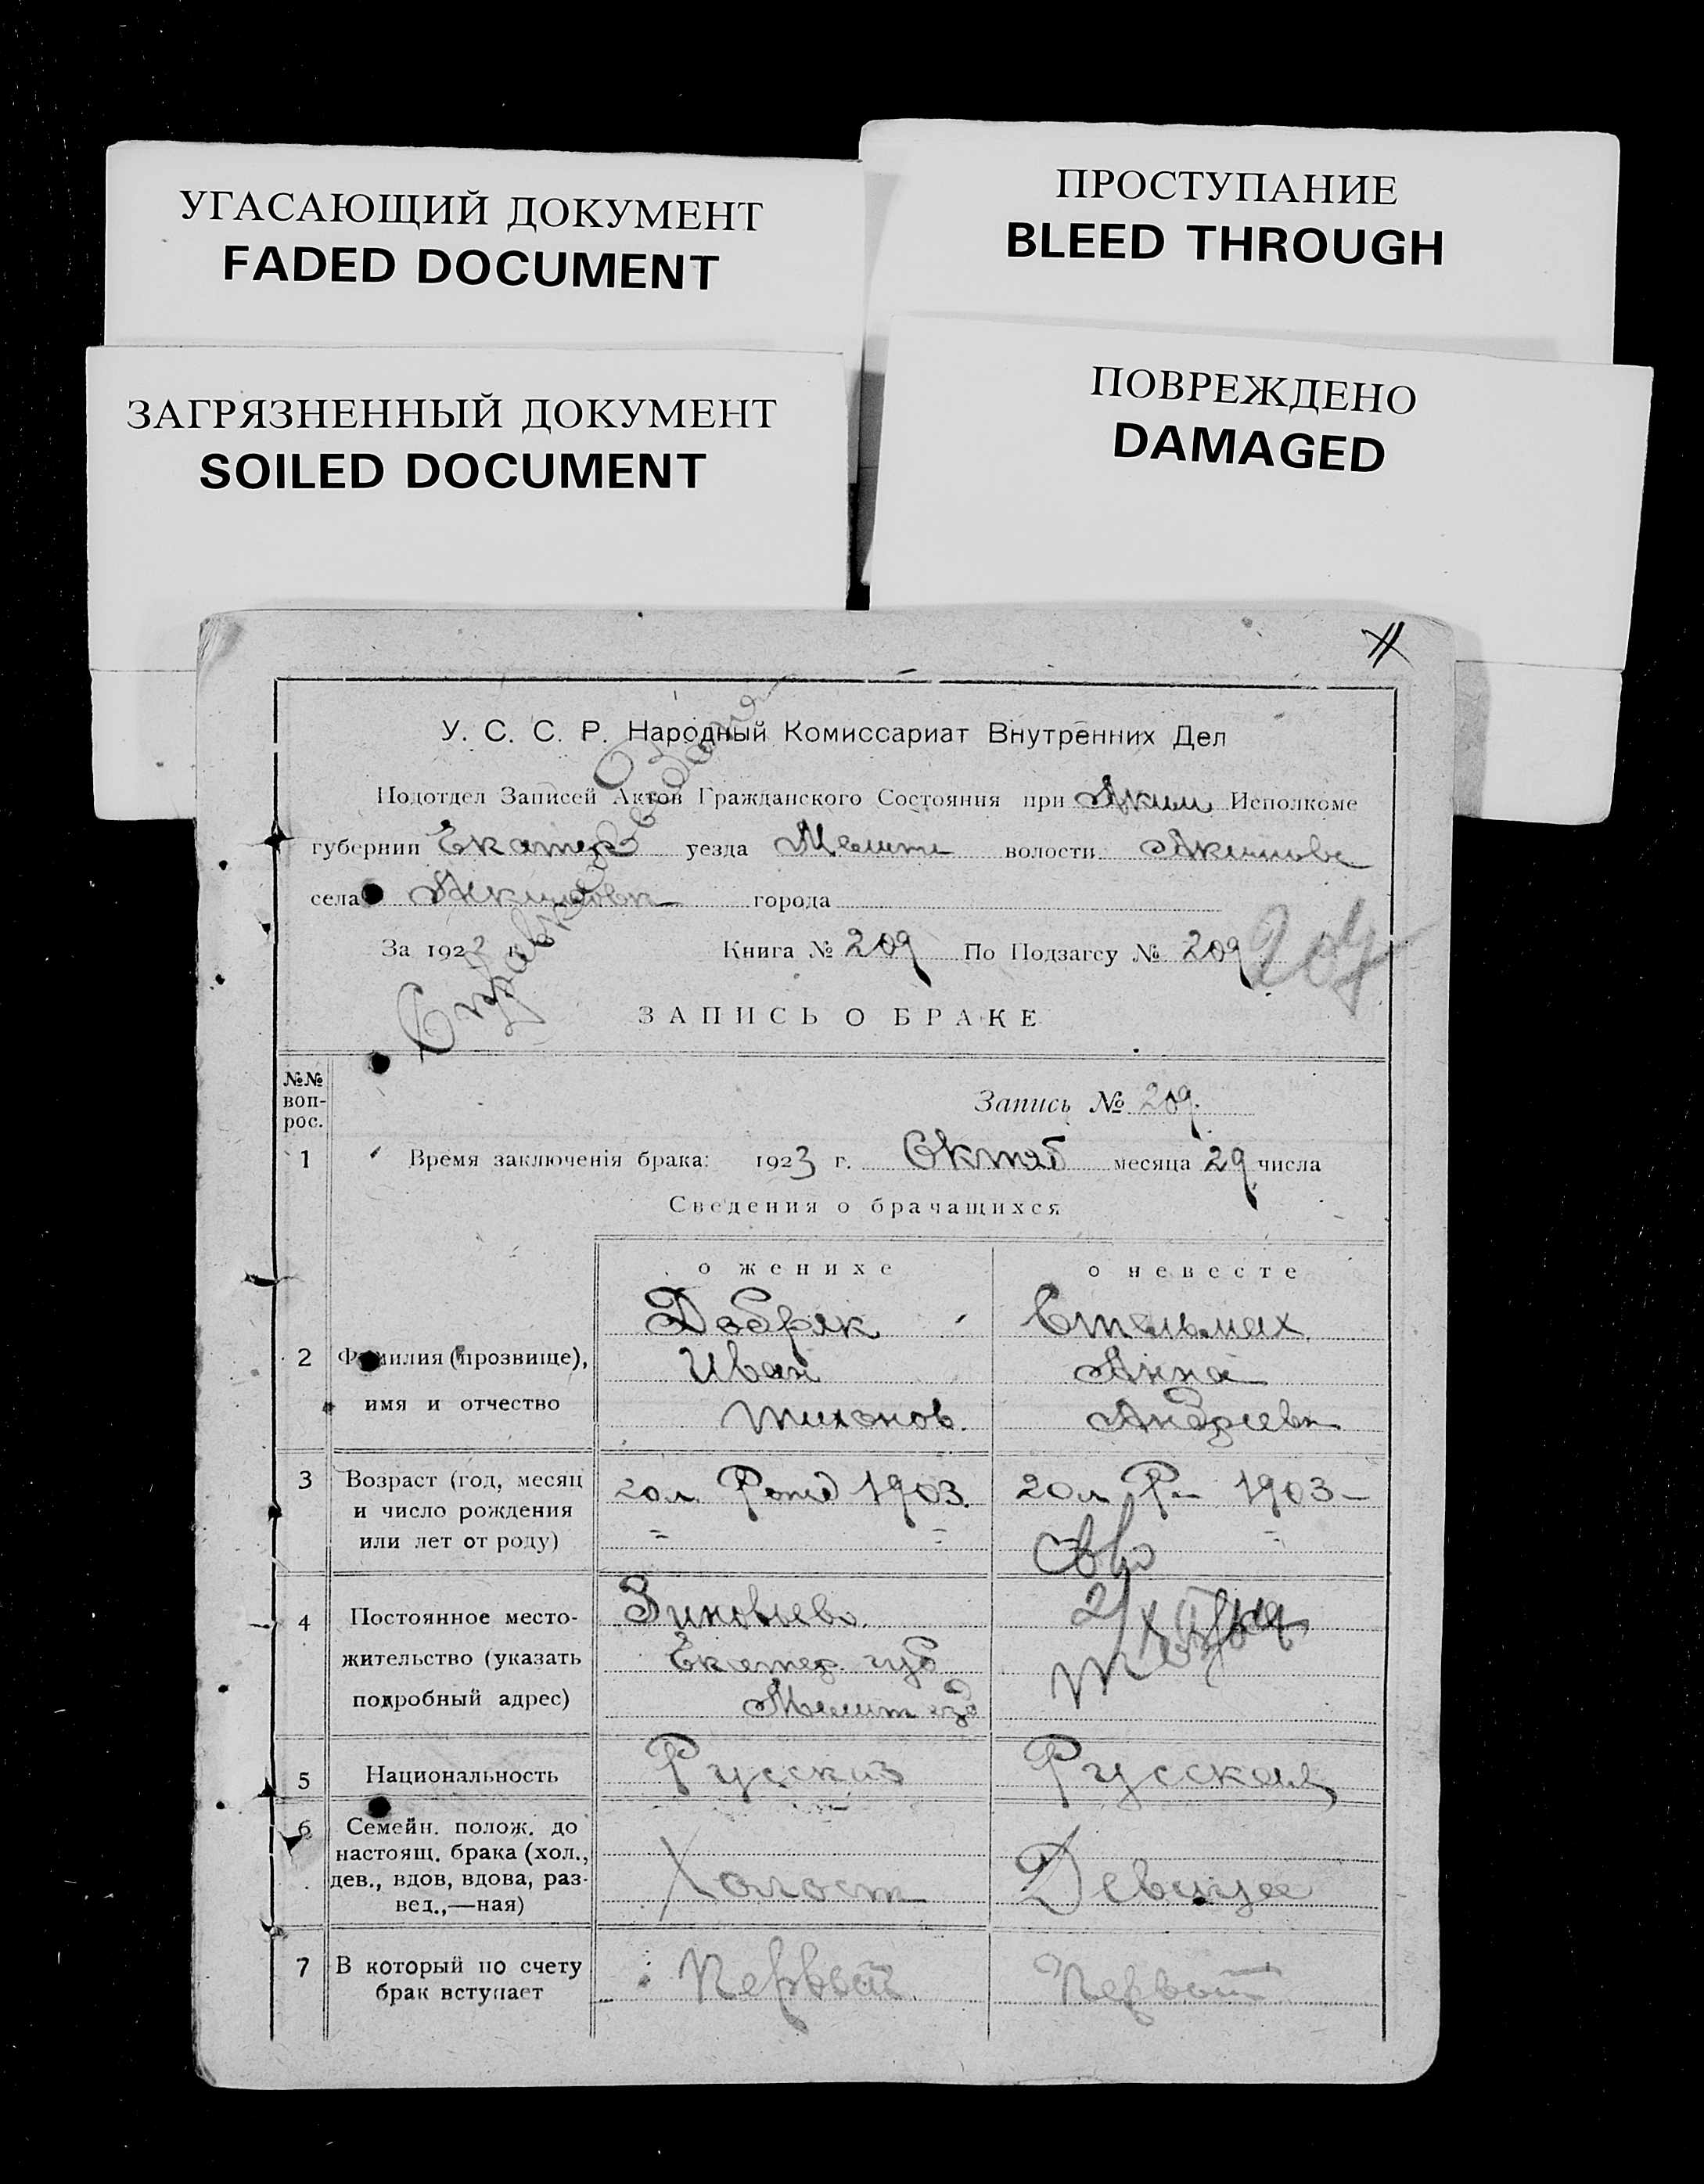 УГАСАЮЩИЙ ДОКУМЕНТ
FADED DOCUMENT
ПРОСТУПАНИЕ
BLEED THROUGH
ЗАГРЯЗНЕННЫЙ ДОКУМЕНТ
SOILED DOCUMENT
ПОВРЕЖДЕНО
DAMAGED
У. С. С. Р. Народный Комиссариат Внутренних Дел
Подотдел Записей Актов Гражданского Состояния при Аким Исполкоме
губернии Екатер уезда Мелит волости Акимовс
села Акимовк города
За 1923 г. Книга № 209 По Подзагсу № 209
209
Справка выдана
ЗАПИСЬ О БРАКЕ
№№ воп-рос.
Запись № 209.
1 Время заключенія брака: 1923 г. Октяб месяца 29 числа
Сведения о брачащихся
о женихе о невесте
Добряк Стельмах
2 Фамилия (прозвище), Иван Анна
имя и отчество Тихонов. Андреевн
3 Возраст (год, месяц 20 л. Рожд 1903. 20 л Р— 1903—
и число рождения
или лет от роду)
4 Постоянное место- Зиновьево
жительство (указать Екатер губ
подробный адрес) Мелит уезд
5 Национальность Русский Русская
6 Семейн. полож. до
настоящ. брака (хол.,
дев., вдов, вдова, раз- Холост Девица
вед.,—ная)
7 В который по счету Первый Первый
брак вступает